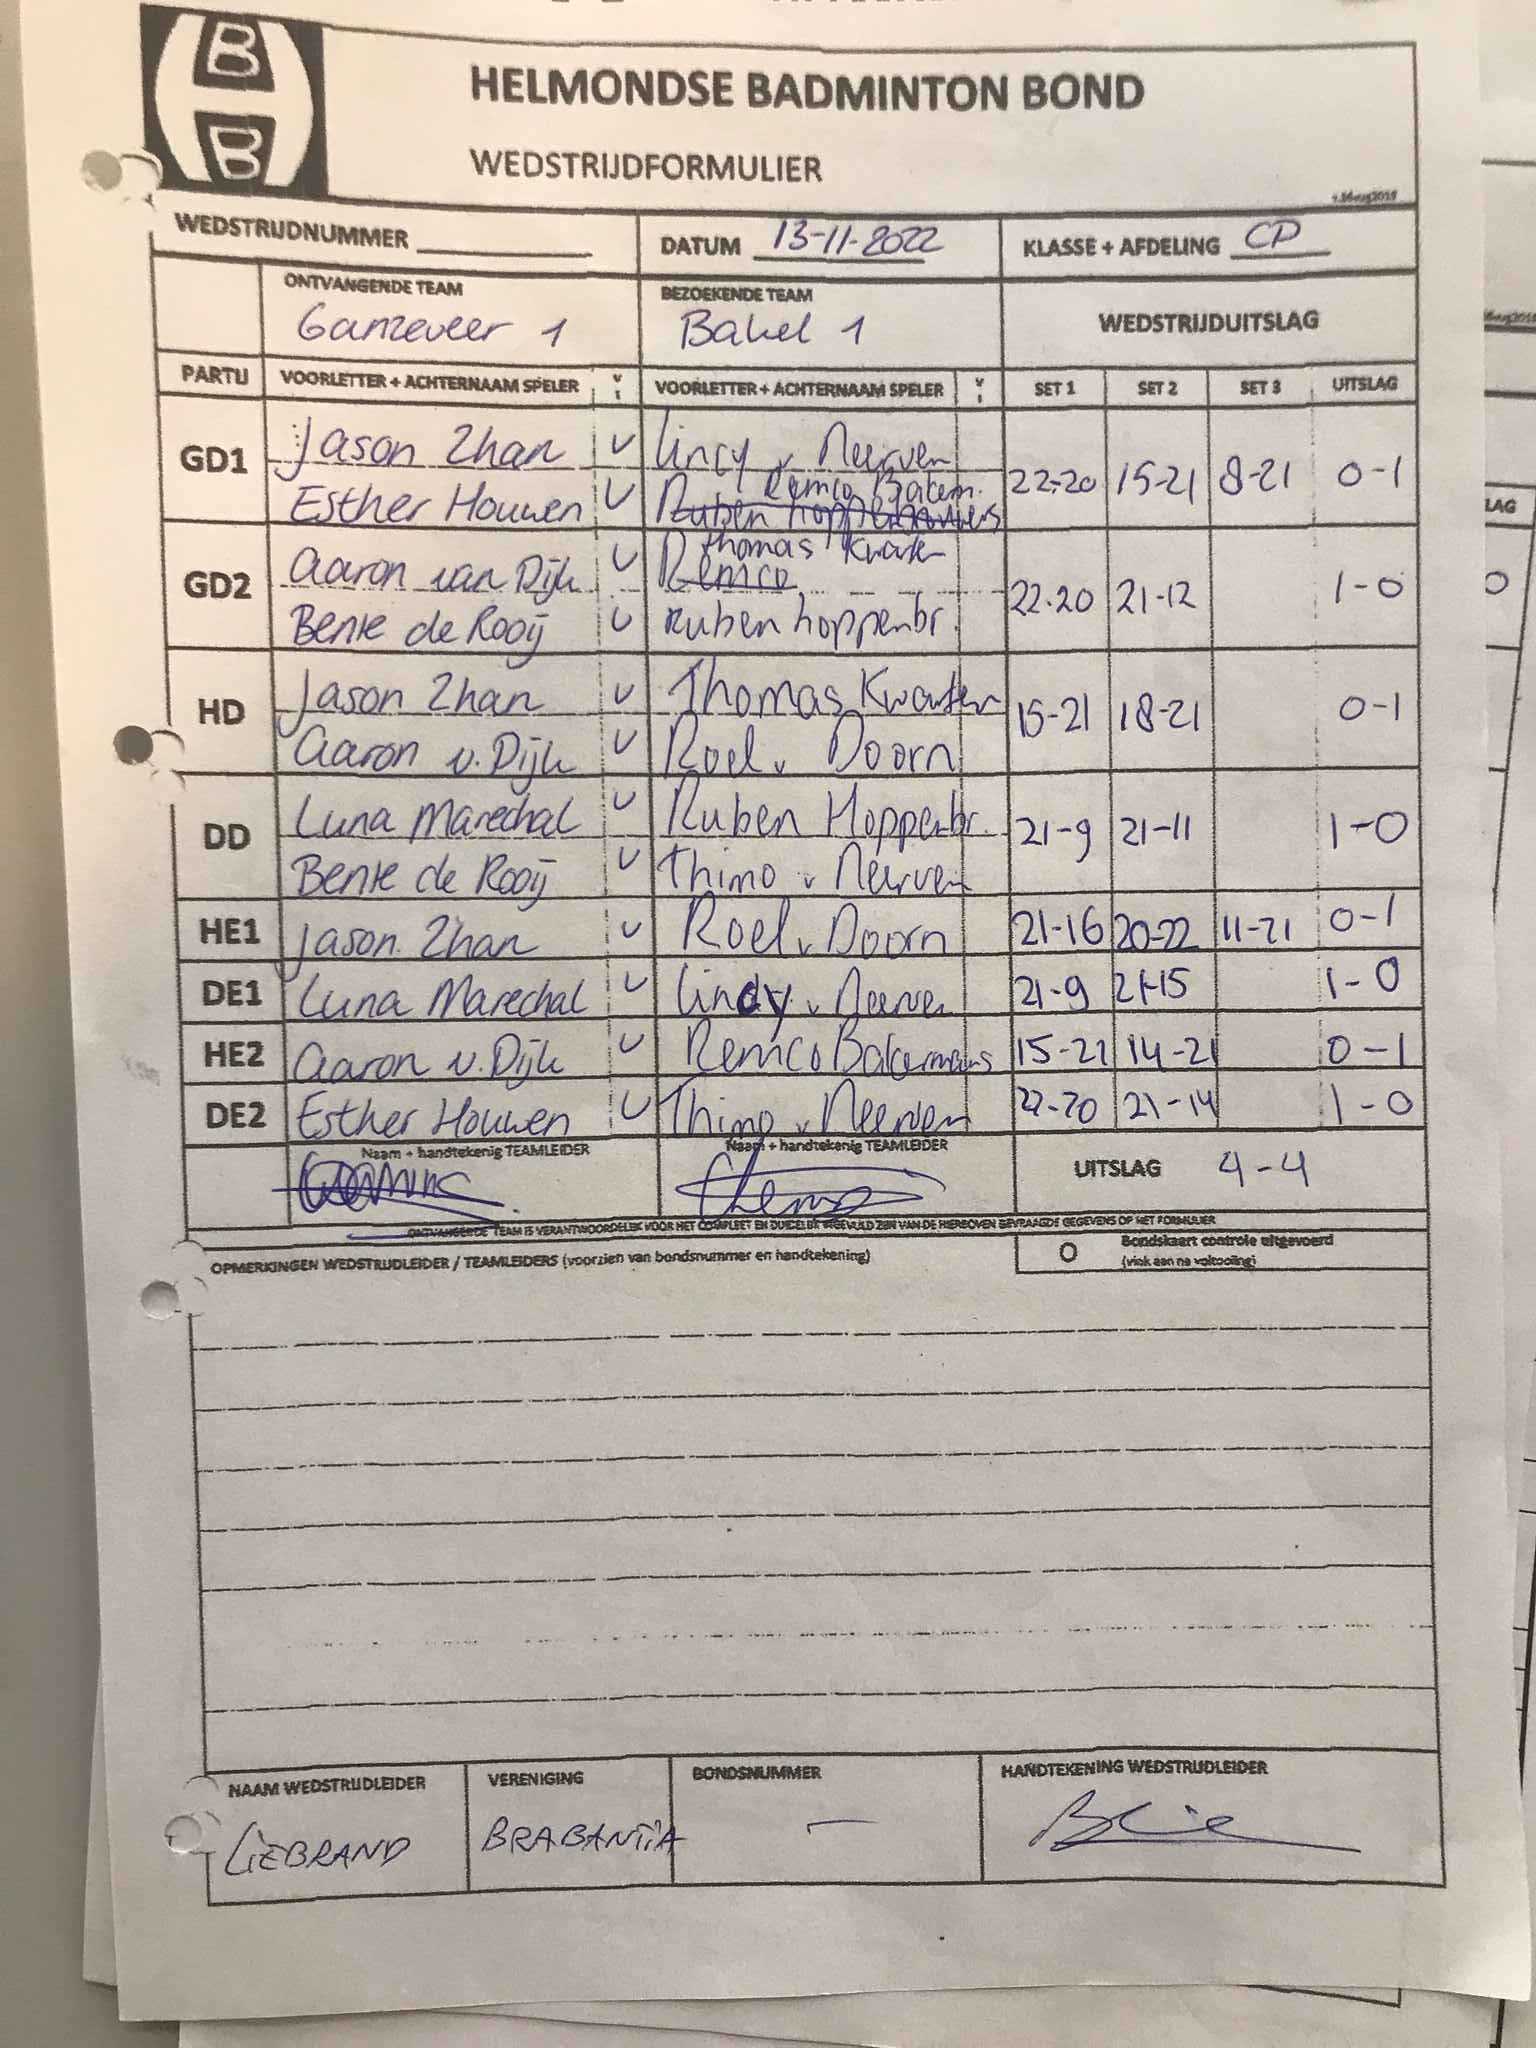 B
B
HELMONDSE BADMINTON BOND
WEDSTRIJDFORMULIER
WEDSTRIJDNUMMER DATUM 13-11-2022 KLASSE + AFDELING CP
ONTVANGENDE TEAM BEZOEKENDE TEAM WEDSTRIJDUITSLAG
Ganzeveer 1 Bakel 1
PARTIJ VOORLETTER + ACHTERNAAM SPELER V I VOORLETTER + ACHTERNAAM SPELER V I SET 1 SET 2 SET 3 UITSLAG
GD1 Jason Zhan V Lincy v Neerven 22-20 15-21 8-21 0-1
Esther Houwen V Remco Bakerm.
Ruben
GD2 Aaron van Dijk V Thomas Kwarten 22-20 21-12 1-0
Remco
Bente de Rooij V Ruben hoppenbr.
HD Jason Zhan V Thomas Kwarten 15-21 18-21 0-1
Aaron v. Dijk V Roel v Doorn
DD Luna Marechal V Ruben Hoppenbr. 21-9 21-11 1-0
Bente de Rooij V Thimo v Neerven
HE1 Jason Zhan V Roel v Doorn 21-16 20-22 11-21 0-1
DE1 Luna Marechal V Lindy v Neerven 21-9 21-15 1-0
HE2 Aaron v. Dijk V Remco Bakermans 15-21 14-21 0-1
DE2 Esther Houwen V Thimo v Neerven 22-20 21-14 1-0
Naam + handtekenig TEAMLEIDER Naam + handtekenig TEAMLEIDER UITSLAG 4-4
ONTVANGENDE TEAM IS VERANTWOORDELIJK VOOR HET COMPLEET EN DUIDELIJK INGEVULD ZIJN VAN DE HIERBOVEN GEVRAAGDE GEGEVENS OP HET FORMULIER
OPMERKINGEN WEDSTRIJDLEIDER / TEAMLEIDERS (voorzien van bondsnummer en handtekening) O Bondskaart controle uitgevoerd
(vink aan na voltooiing)
NAAM WEDSTRIJDLEIDER VERENIGING BONDSNUMMER HANDTEKENING WEDSTRIJDLEIDER
LIEBRAND BRABANTIA -